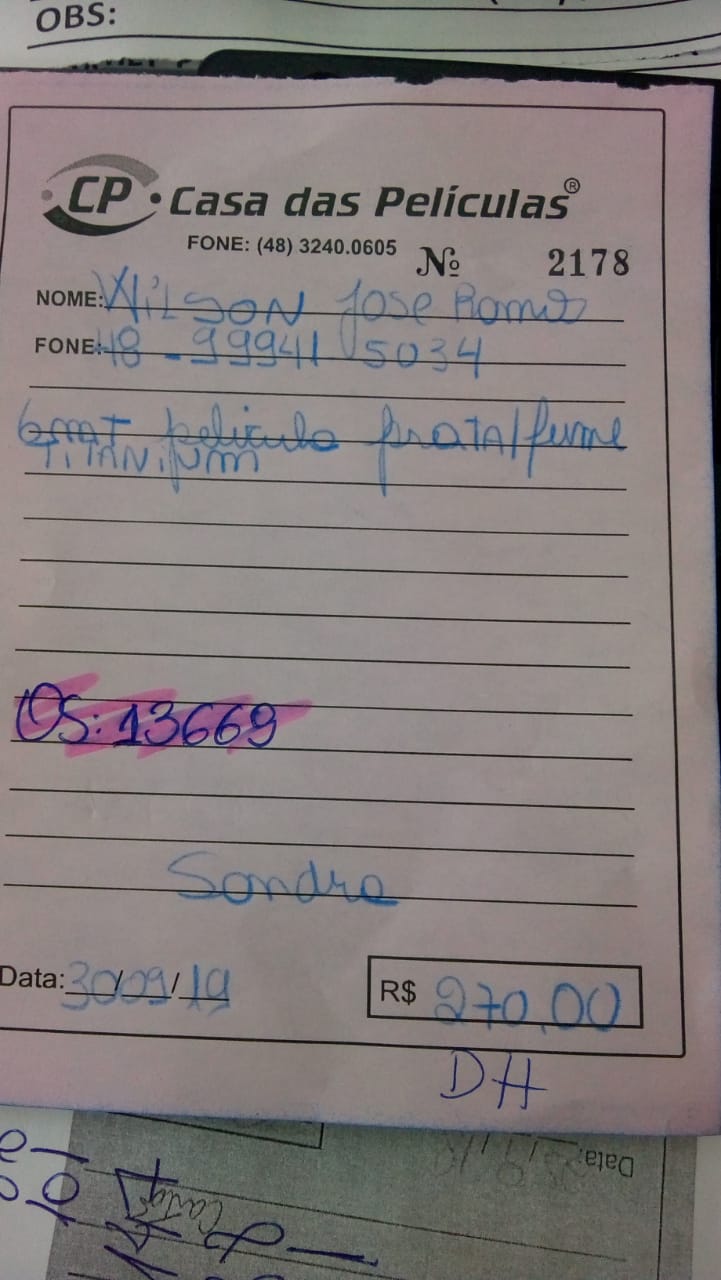 OBS:
CP • Casa das Películas®
FONE: (48) 3240.0605 Nº 2178
NOME: Wilson Jose
FONE: 48 - 99941 5034
6mt pelicula prata/fume
TITANiUM
OS: 13669
Sandra
Data: 30/09/19 R$ 270,00
DH
Data: